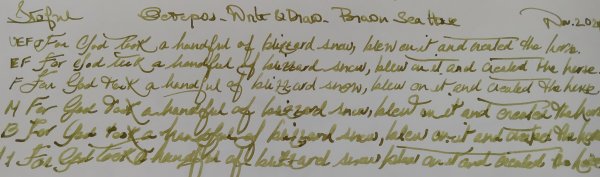 Joful Octopus - Write & Draw - Brown Sea Horse Nov. 202
UEF For God took a handful of blizzard snow, blew on it and created the horse.
EF For God took a handful of blizzard snow, blew on it and created the horse.
F For God took a handful of blizzard snow, blew on it and created the horse
M For God took a handful of blizzard snow, blew on it and created the hor
B For God took a handful of blizzard snow, blew on it and created the ho
For God took a handful of blizzard snow blew on it and created the hors